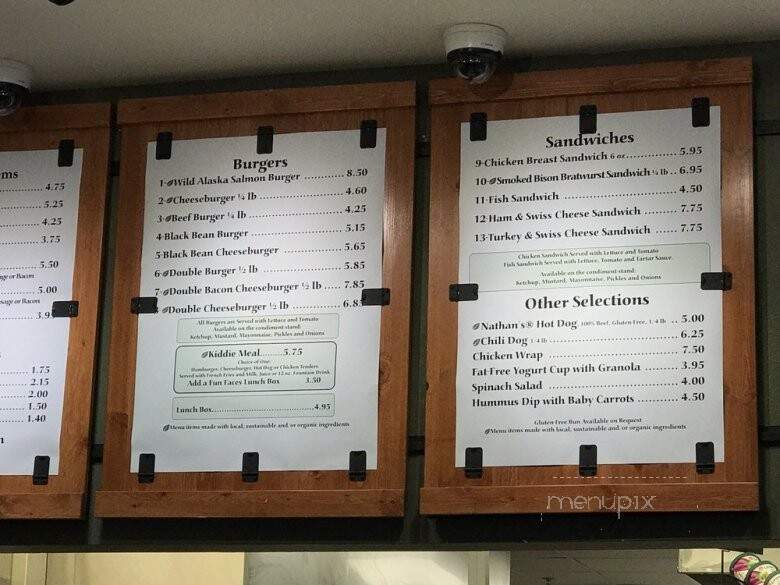 ms
4.75
5.25
4.25
3.75
5.50
sage or Bacon
5.00
sage or Bacon
3.9
1.75
2.15
2.00
1.50
1.40
Burgers
1-Wild Alaska Salmon Burger .......... 8.50
2-Cheeseburger ¼ lb .......... 4.60
3-Beef Burger ¼ lb .......... 4.25
4-Black Bean Burger .......... 5.15
5-Black Bean Cheeseburger .......... 5.65
6-Double Burger ½ lb .......... 5.85
7-Double Bacon Cheeseburger ½ lb .... 7.85
Double Cheeseburger ½ lb .......... 6.85
All Burgers are Served with Lettuce and Tomato
Available on the condiment stand:
Ketchup, Mustard, Mayonnaise, Pickles and Onions
Kiddie Meal.......5.75
Choice of One:
Hamburger, Cheeseburger, Hot Dog or Chicken Tenders
Served with French Fries and Milk, Juice or 12 oz. Fountain Drink.
Add a Fun Faces Lunch Box 3.50
Lunch Box..............................4.95
Menu items made with local, sustainable and or organic ingredients
Sandwiches
9-Chicken Breast Sandwich 6 oz............... 5.95
10-Smoked Bison Bratwurst Sandwich ¼ lb .. 6.95
11-Fish Sandwich .......... 4.50
12-Ham & Swiss Cheese Sandwich ....... 7.75
13-Turkey & Swiss Cheese Sandwich ...... 7.75
Chicken Sandwich Served with Lettuce and Tomato
Fish Sandwich Served with Lettuce, Tomato and Tartar Sauce.
Available on the condiment stand:
Ketchup, Mustard, Mayonnaise, Pickles and Onions
Other Selections
Nathan's® Hot Dog 100% Beef, Gluten Free, 1/4 lb .. 5.00
Chili Dog 1/4 lb .......... 6.25
Chicken Wrap .......... 7.50
Fat-Free Yogurt Cup with Granola ...... 3.95
Spinach Salad .......... 4.00
Hummus Dip with Baby Carrots ......... 4.50
Gluten Free Bun Available on Request
Menu items made with local, sustainable and or organic ingredients
menupix